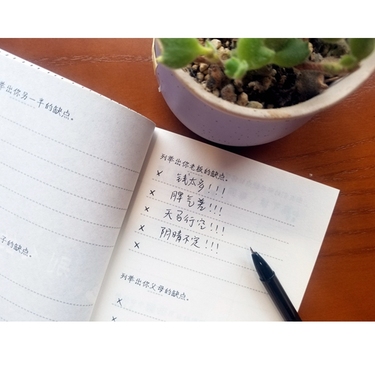 出你另一半的缺点。
子的缺点。
列举出你老板的缺点。
× 钱太多!!!
× 脾气差!!!
× 天马行空!!!
× 阴晴不定!!!
列举出你父母的缺点。
×
×